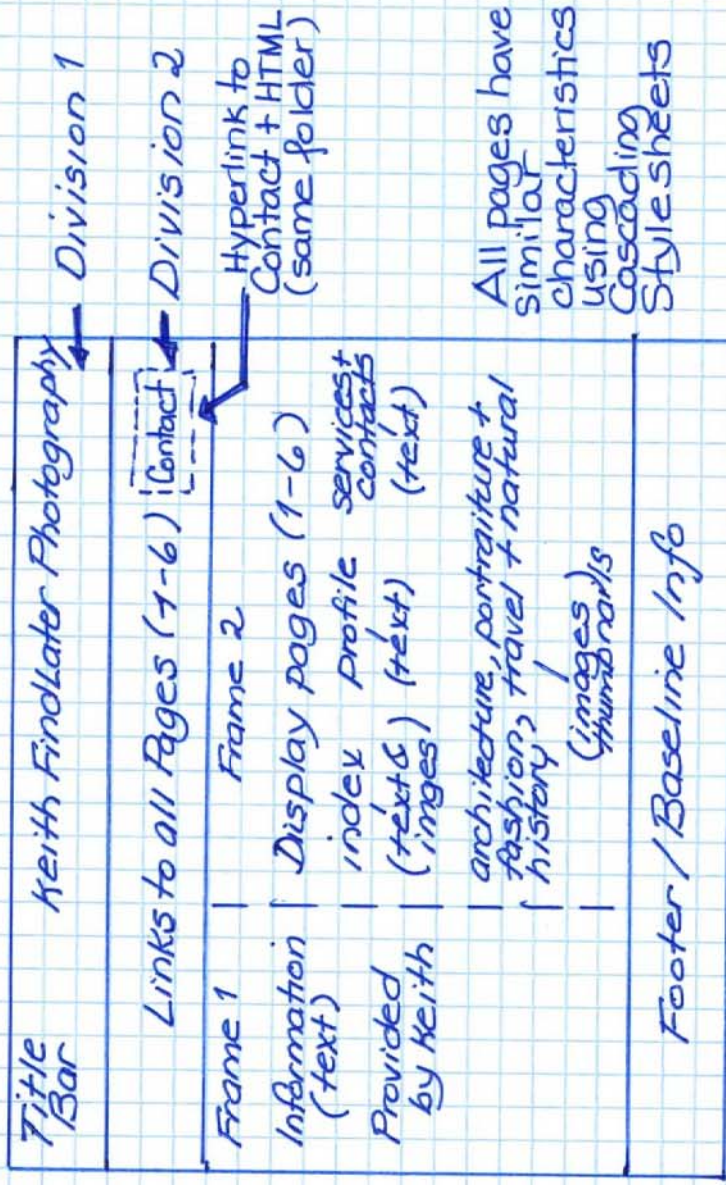 Title
Bar
Keith FindLater Photography
Division 1
Links to all Pages (1-6)
Contact
Division 2
Hyperlink to
Contact + HTML
(same folder)
Frame 1
Information
(text)
Provided
by Keith
Frame 2
Display pages (1-6)
index
(text &
imges)
profile
(text)
services +
contacts
(text)
architecture, portraiture +
fashion, travel + natural
history
(images)
thumbnails
All pages have
similar
characteristics
using
Cascading
Stylesheets
Footer / Baseline Info